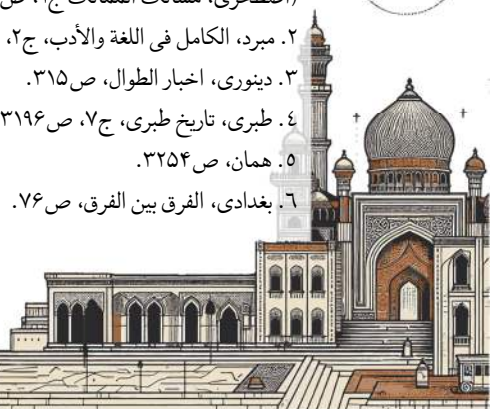 (اصطخری، مسالک الممالک ج۱، ص
۲. مبرد، الکامل فی اللغة والأدب، ج۲،
۳. دینوری، اخبار الطوال، ص۳۱۵.
٤. طبری، تاریخ طبری، ج۷، ص۳۱۹۶
۵. همان، ص۳۲۵۴.
٦. بغدادی، الفرق بین الفرق، ص۷۶.